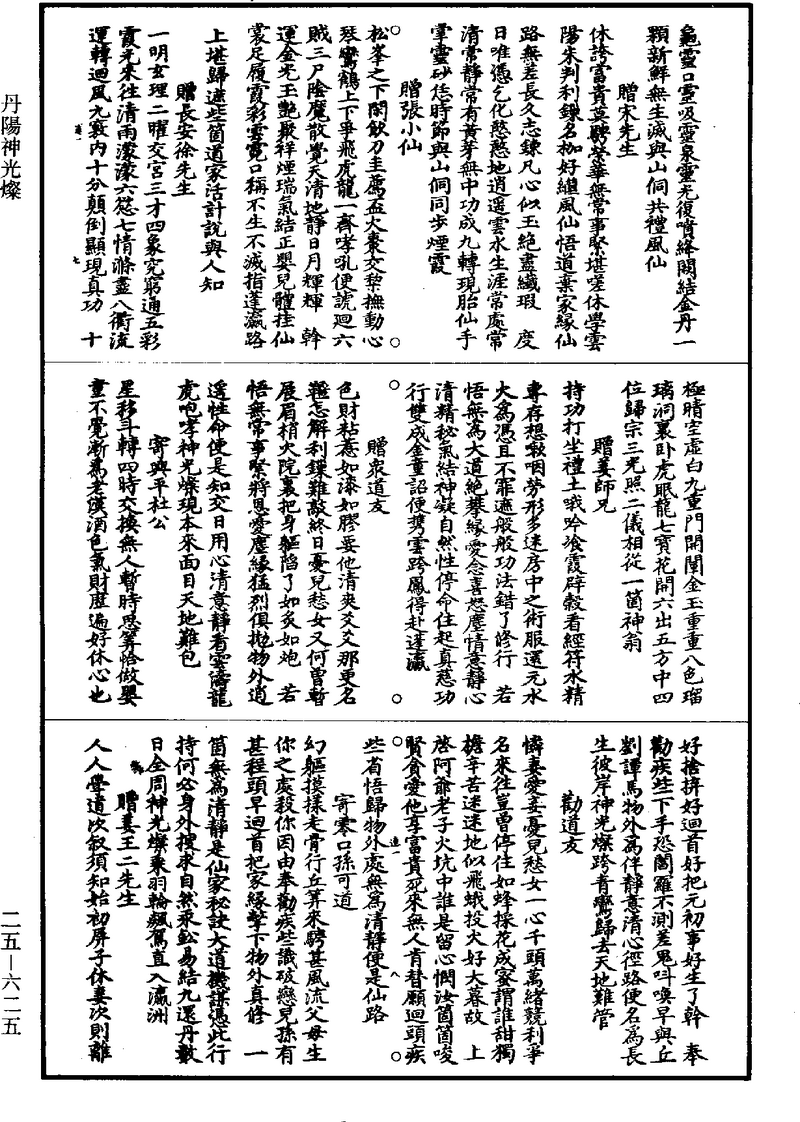 丹陽神光燦
龜靈口靈吸靈泉靈充復嘖絳闕結金丹一
顆新鮮無生滅與山侗共禮風仙
贈宋先生
休誇富貴莫騁榮華無常事緊堪嗟休學雲
陽朱判利鎌名枷好繼風仙悟道棄家緣仙
路無差長久志鍊凡心似玉絕盡纖瑕 度
日唯憑乞化憨憨地逍遥雲水生涯常處常
清常靜常有黃芽無中功成九轉現胎仙手
掌靈砂恁時節與山侗同步煙霞
贈張小仙
松峯之下閑飲刀圭薦盃火棗交棃撫動心
琹鸞鶴上下爭飛虎龍一齊哮吼便諕廻六
賊三尸陰魔散覺天清地靜日月輝輝 斡
運金光玉艷聚祥煙瑞氣結正嬰兒體挂仙
裳足履霞彩雲霓口稱不生不滅指蓬瀛路
上堪歸遠些箇道家活計說與人知
贈長安徐先生
一明玄理二曜交宮三才四象究窮通五彩
霞光來往清雨濛濛六慾七情滌盡八衢流
運轉迴風九竅内十分顛倒顯現真功 十
極晴空虛白九重門開闡金玉重重八色瑠
璃洞裏卧虎眠龍七寳花開六出五方中四
位歸宗三光照二儀相從一箇神翁
贈姜師兄
持功打坐禮土哦吟飡霞辟穀看經符水精
專存想嗽咽勞形多迷房中之術服還元水
火為憑且不罪遮般般功法錯了修行 若
悟無為大道絶攀緣愛念喜怒塵情意靜心
清精秘氣結神凝自然性停命住起真慈功
行雙成金童詔便攜雲跨鳳得赴蓬瀛
贈衆道友
色財粘惹如漆如膠耍他清爽爻爻那更名
韁怎解利鏁難敲終日憂兒愁女又何曽暫
展眉梢火院裏把身軀䧟了如炙如炮 若
悟無常事緊將恩愛塵緣猛烈俱抛物外逍
遥性命便是知交日用心清意靜看雲濤龍
虎咆哮神光燦現本來面目天地難包
寄興平社公
星移斗轉四時交換無人暫時思筭恰做嬰
童不覺漸為老漢酒色氣財歷遍好休心也
好捨拚好迴首好把元初事好生了幹 奉
勸疾些下手恐閻羅不測差鬼呌喚早與丘
劉譚馬物外為伴靜意清心徑路便名為長
生彼岸神光燦跨青鸞歸去天地難管
勸道友
憐妻愛妾憂兒愁女一心千頭萬緒競利爭
名來往豈曾停住如蜂採花成蜜謂誰甜獨
擔辛苦迷迷地似飛蛾投火好大暮故 上
啓阿爺老子火坑中誰是留心憫汝箇箇唆
賢貪愛他享富貴死來無人肯替願迴頭疾
些省悟歸物外處無為清靜便是仙路
寄零口孫可道
幻軀摸樣走骨行丘筭來騁甚風流父母生
你之處殺你因由奉勸疾些識破戀兒孫有
甚程頭早迴首把家緣撆下物外真修 一
箇無為清靜是仙家秘訣大道機謀憑此行
持何必身外搜求自然汞鈆易結九還丹數
日全周神光燦乘羽輪飇駕直入瀛洲
贈姜王二先生
人人學道次叙須知始初屏子休妻次則離
二五—六二五